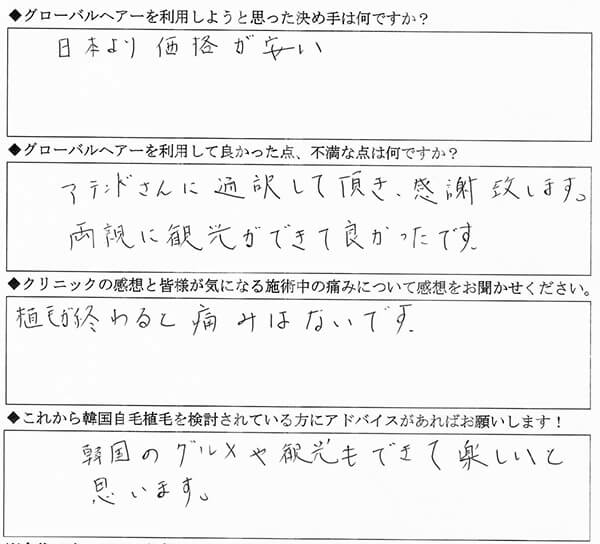 ◆グローバルヘアーを利用しようと思った決め手は何ですか？
日本より価格が安い
◆グローバルヘアーを利用して良かった点、不満な点は何ですか？
アテンドさんに通訳して頂き、感謝致します。
両親に観光ができて良かったです。
◆クリニックの感想と皆様が気になる施術中の痛みについて感想をお聞かせください。
植毛が終わると痛みはないです。
◆これから韓国自毛植毛を検討されている方にアドバイスがあればお願いします！
韓国のグルメや観光もできて楽しいと
思います。